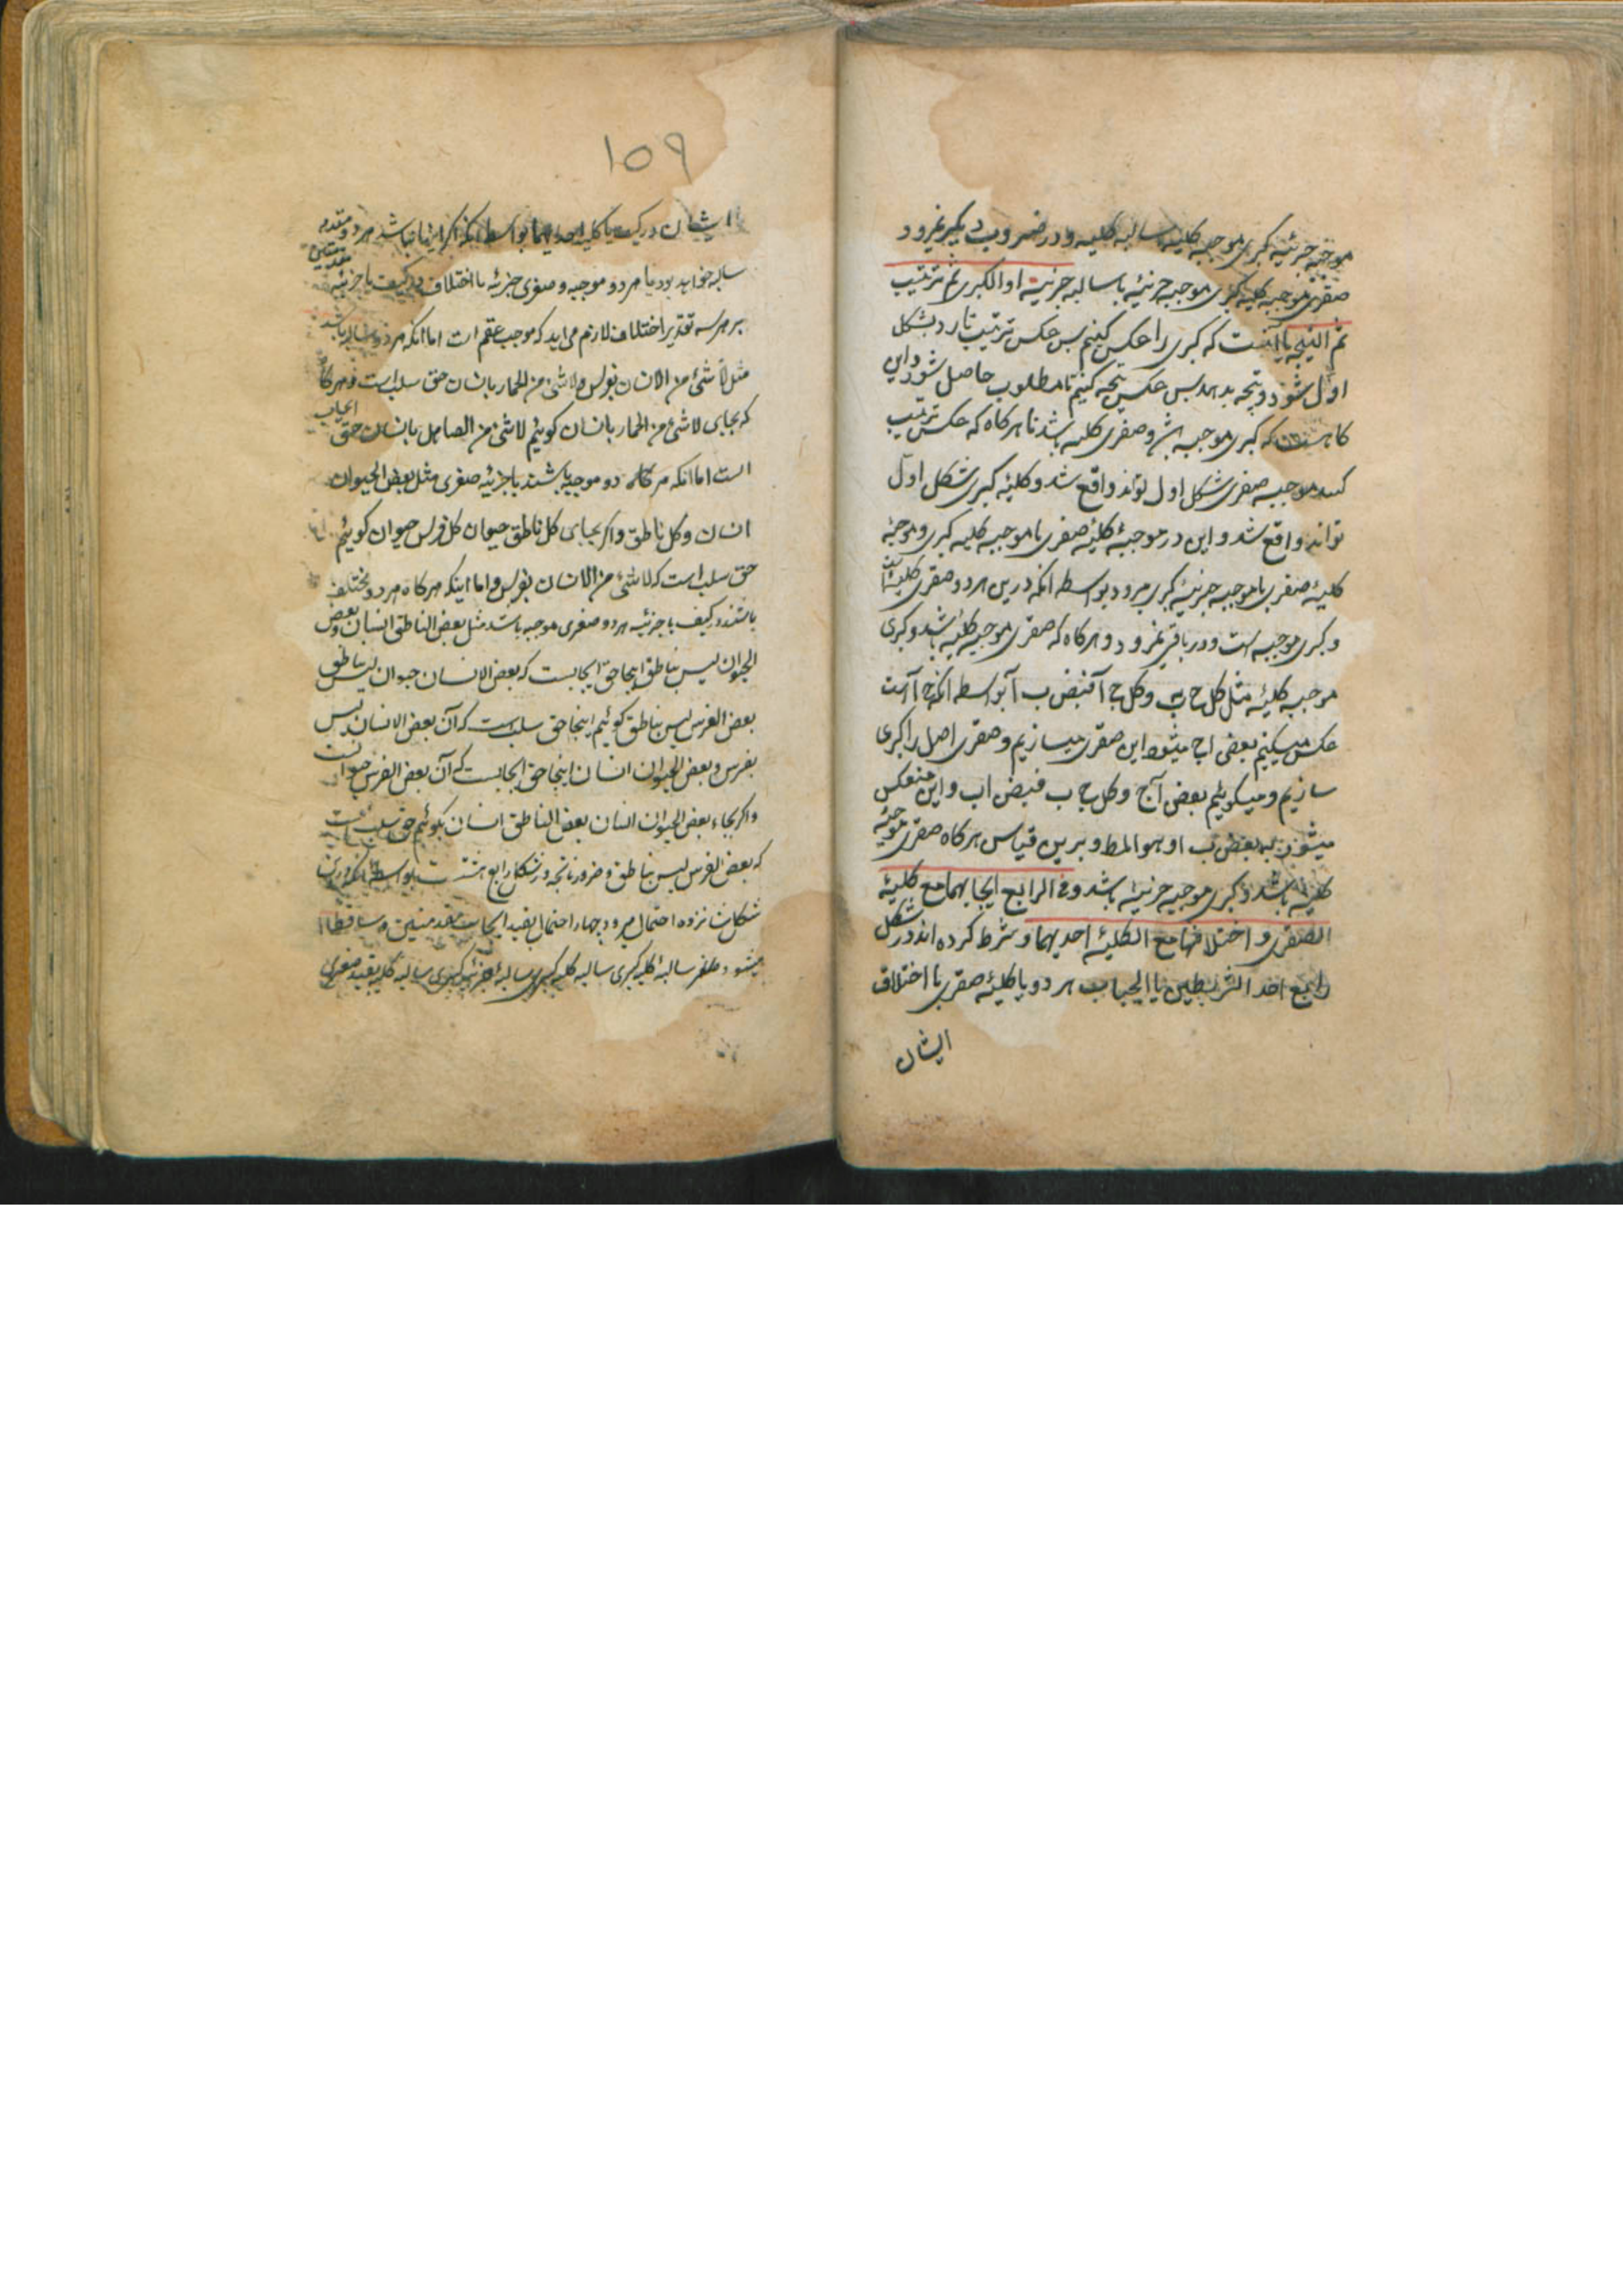 موجبه جزئیه کبری موجبه کلیه سالبه کلیه و در ضروب دیگر نمیرود
صغری موجبه کلیه کبری موجبه جزئیه یا سالبه جزئیه او الکبری ثم ترتیب
ثم النتیجه یا آنست که کبری را عکس کنیم پس عکس ترتیب تا رد بشکل
اول شود و نتیجه بدهد پس عکس نتیجه کنیم تا مطلوب حاصل شود و این
کاهست که کبری موجبه باشد و صغری کلیه باشد تا هرکاه که عکس ترتیب
کنند موجبه صغری شکل اول تواند واقع شد و کلیه کبری شکل اول
تواند واقع شد و این در موجبه کلیه صغری با موجبه کلیه کبری و موجبه
کلیه صغری با موجبه جزئیه کبری میرود بواسطه انکه درین هر دو صغری کلیه است
و کبری موجبه است و در باقی نمیرود و هرکاه که صغری موجبه کلیه باشد و کبری
موجبه کلیه مثل کل ج ب و کل ج آ فبعض ب آ بواسطه انکه کل ج آ است
عکس میکنیم بعض ا ج میشود این صغری میسازیم و صغری اصل را کبری
سازیم و میکوییم بعض آ ج و کل ج ب فبعض ا ب و این منعکس
میشود به بعض ب ا و هو المط و برین قیاس هرکاه صغری موجبه
کلیه باشد و کبری موجبه جزئیه باشد و فی الرابع ایجابهما مع کلیة
الصغری و اختلافهما مع الکلیة احدیهما و شرط کرده اند در شکل
رابع احد الشرطین یا ایجاب هر دو با کلیه صغری یا اختلاف
ایشان
۱۵۹
ایشان در کیف با کلیه احدیهما بواسطه انکه اکر اینها نباشد هر دو مقدمه
سالبه خواهد بود یا هر دو موجبه و صغری جزئیه یا اختلاف در کیف با جزئیه
بر هر سه تقدیر اختلاف لازم می اید که موجب عقم است اما انکه هر دو سالبه باشد
مثل لا شئ من الانسان بفرس و لا شئ من الحمار بانسان حق سلب است و هرکاه
که بجای لا شئ من الحمار بانسان کوییم لا شئ من الصاهل بانسان حق ایجاب
است اما انکه هرکاه دو موجبه باشند با جزئیه صغری مثل بعض الحیوان
انسان و کل ناطق و اکر بجای کل ناطق حیوان کل فرس حیوان کوییم
حق سلب است که لا شئ من الانسان بفرس و اما اینکه هرکاه هر دو مختلف
باشند در کیف با جزئیه هر دو صغری موجبه باشد مثل بعض الناطق انسان و بعض
الحیوان لیس بناطق اینجا حق ایجابست که بعض الانسان حیوان
بعض الفرس لیس بناطق کوییم اینجا حق سلب است که آن بعض الانسان لیس
بفرس و بعض الحیوان انسان اینجا حق ایجابست که آن بعض الفرس حیوانست
و اکر بجای بعض الحیوان انسان بعض الناطق انسان بکوییم حق سلب است
که بعض الفرس لیس بناطق و ضروب ناتجه در شکل رابع هشت است بواسطه انکه درین
شکل شانزده احتمال میرود چهار احتمال بقید ایجاب مقدمتین ساقط
میشود سالبه کلیه کبری سالبه کلیه کبری سالبه جزئیه کبری سالبه کلیه بقید صغری